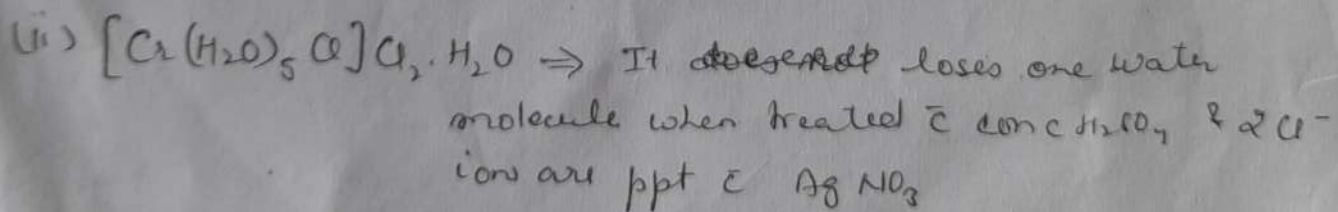 (ii) [Cr(H₂O)₅Cl]Cl₂.H₂O ⇒ It loses one water
molecule when treated c̄ conc H₂SO₄ & 2Cl⁻
ions are ppt c̄ AgNO₃